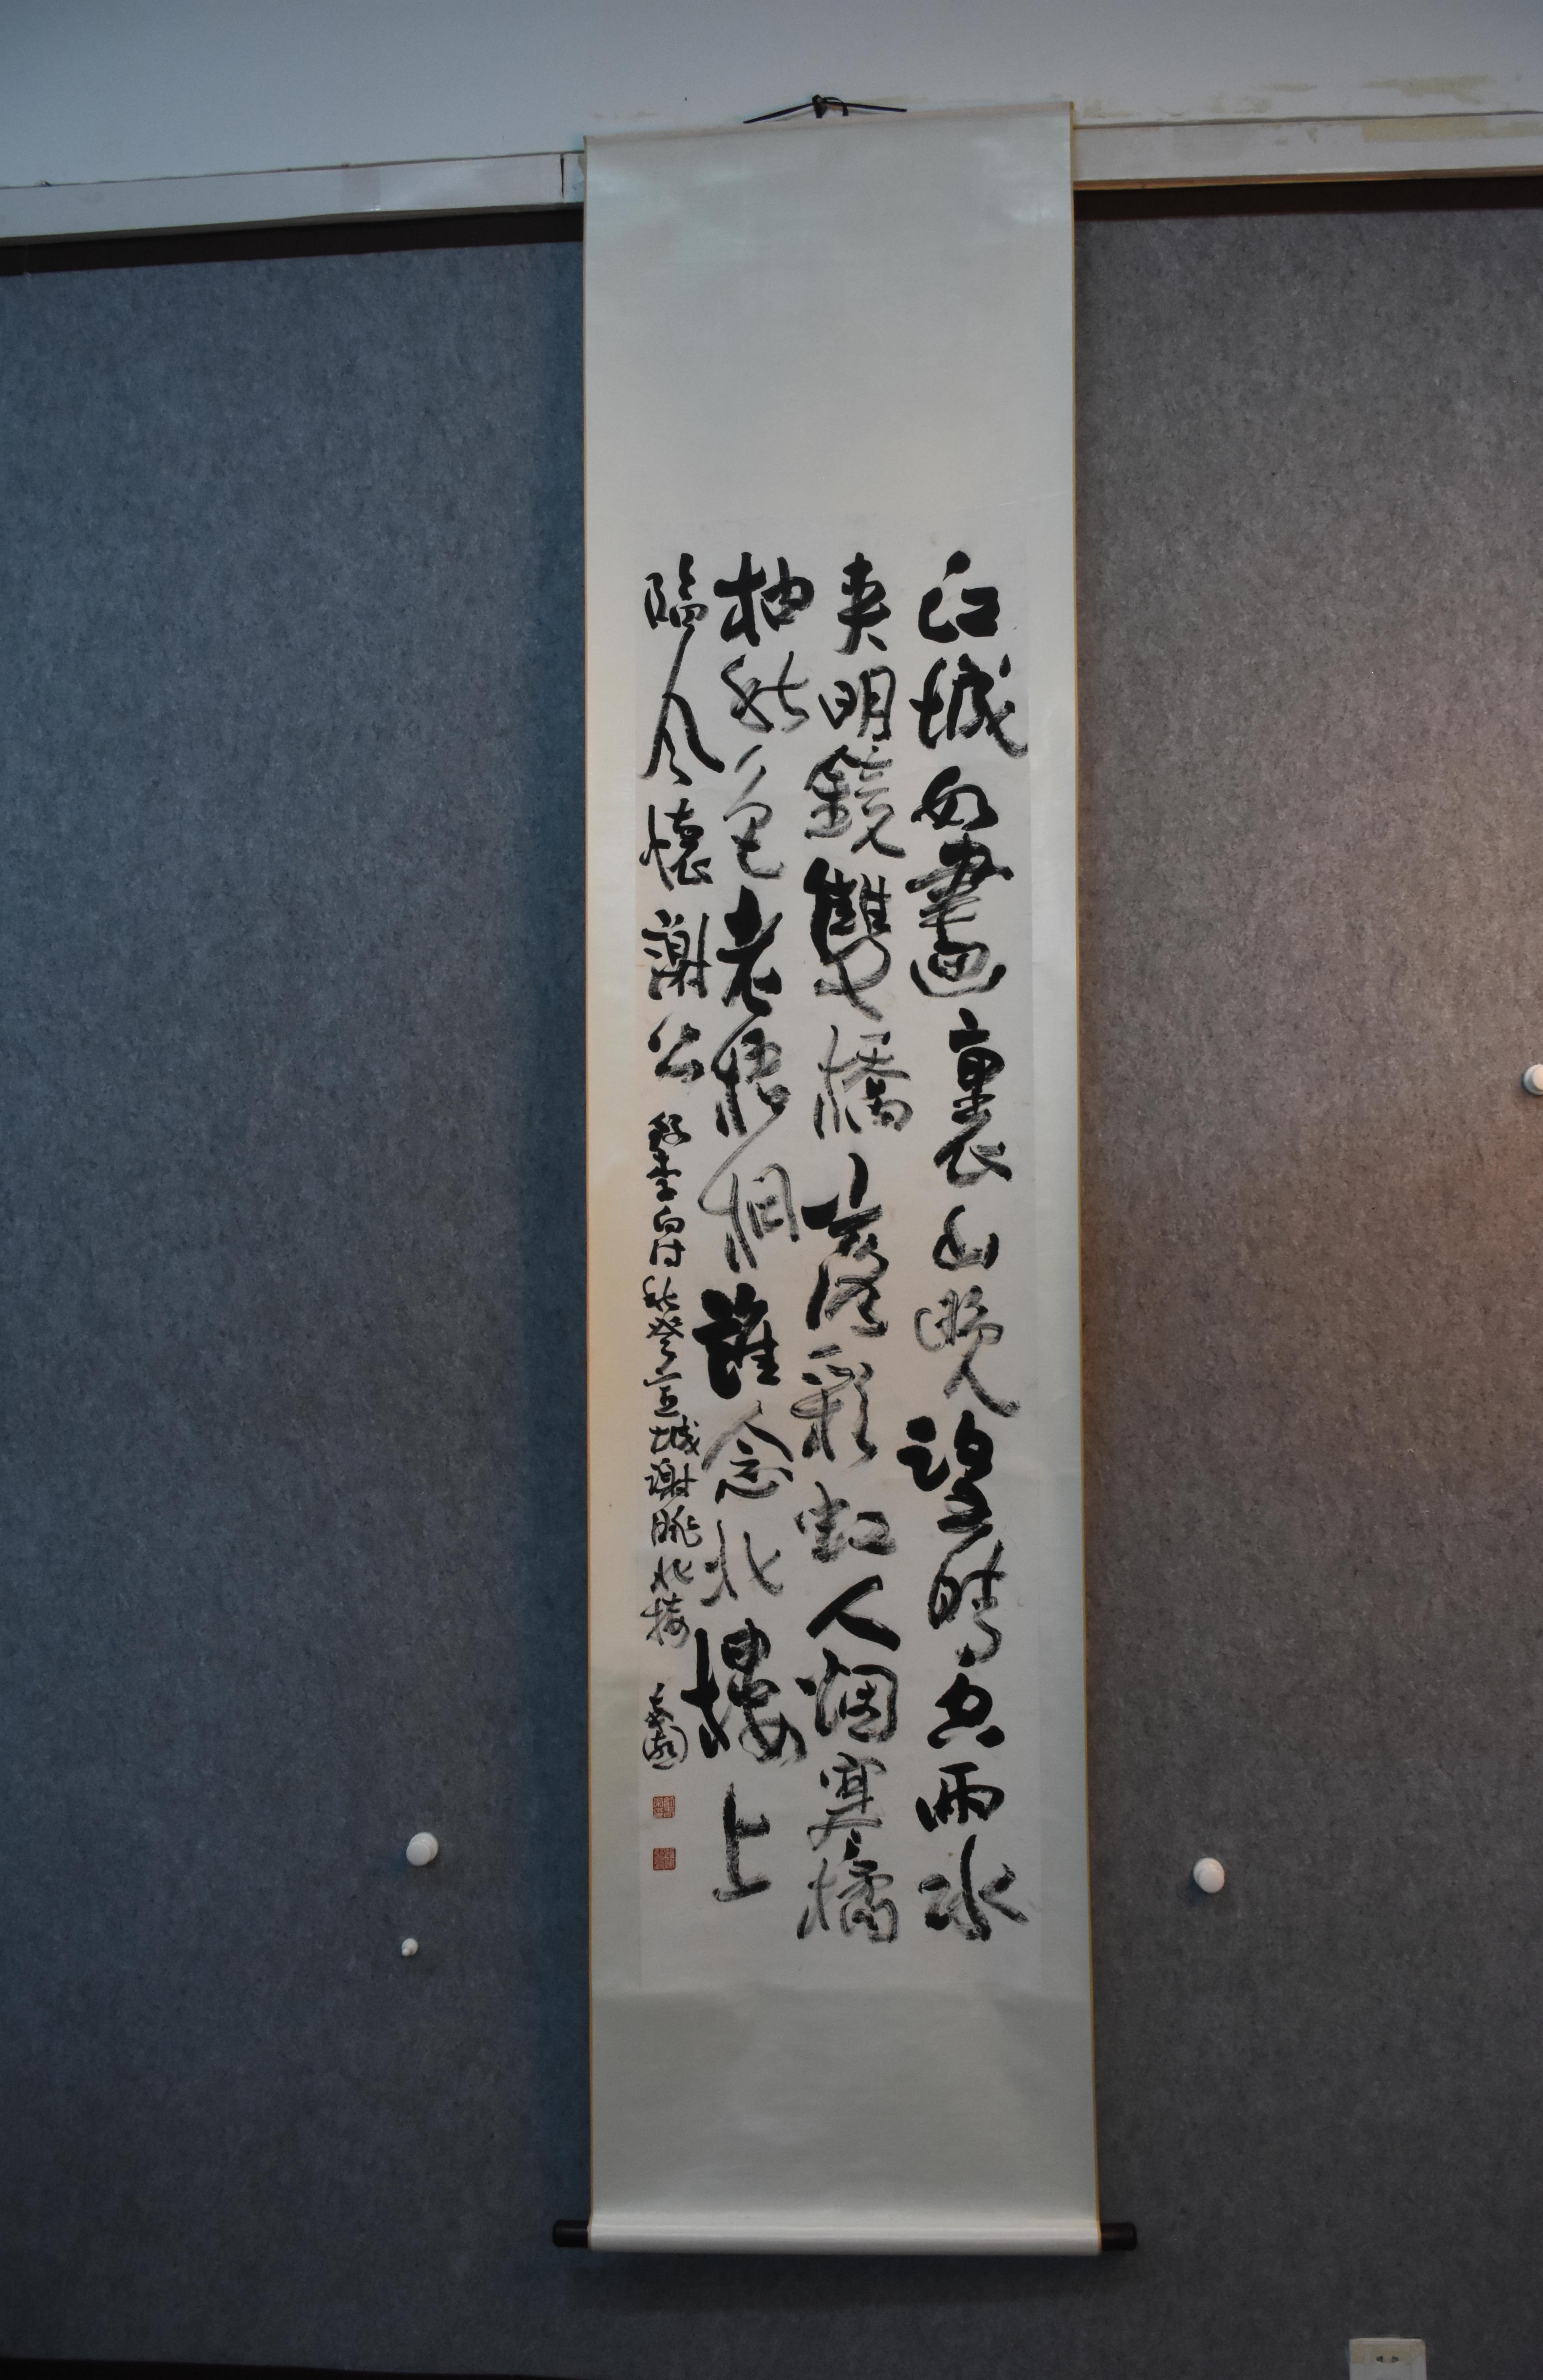 江城如畫裏山晚望晴空雨水
夾明鏡雙橋落彩虹人烟寒橘
柚秋色老梧桐誰念北樓上
臨風懷謝公 錄李白詩秋登宣城謝眺北樓